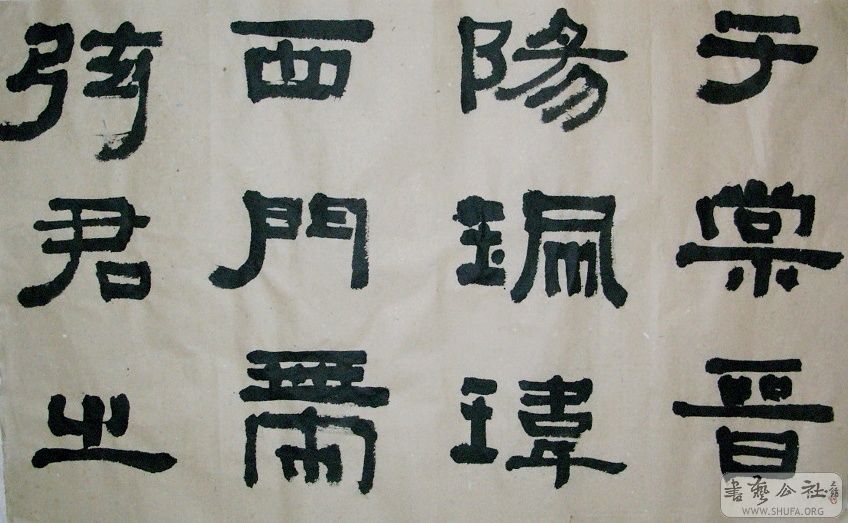 于棠晉
陽珮瑋
西門帶
弦君之
書藝公社
WWW.SHUFA.ORG